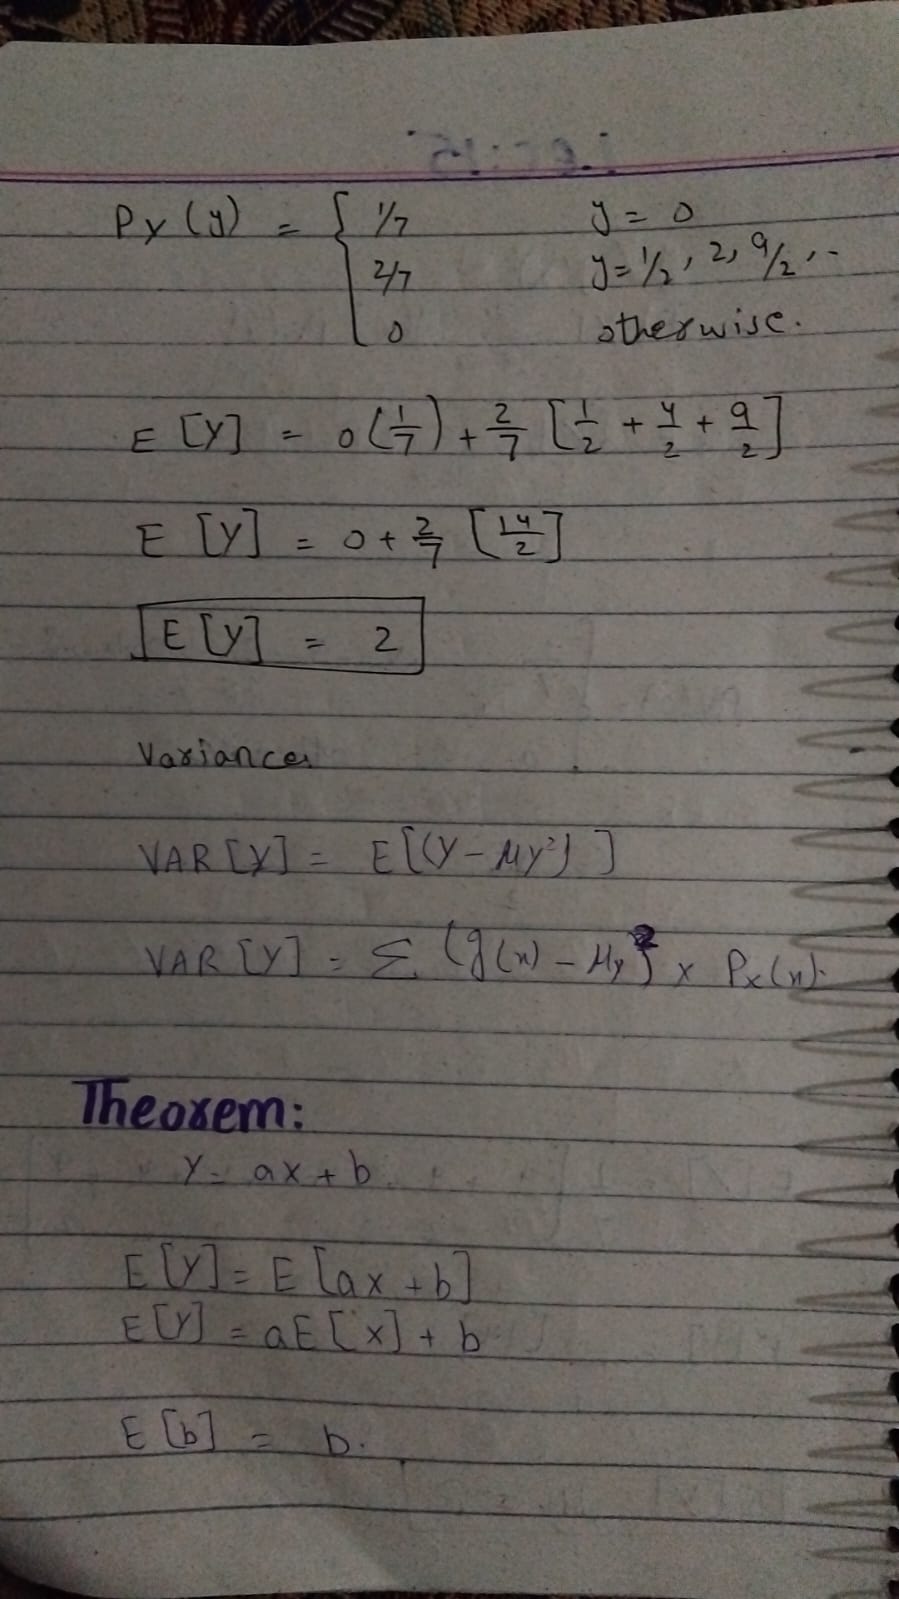 Py(y) = { 1/7 y = 0
2/7 y = 1/2, 2, 9/2, ..
0 otherwise.
E[Y] = 0(1/7) + 2/7 [1/2 + 4/2 + 9/2]
E[Y] = 0 + 2/7 [14/2]
E[Y] = 2
Variance
VAR[Y] = E[(Y - μy²)]
VAR[Y] = Σ (g(x) - μy)² x Px(x).
Theorem:
Y = ax + b
E[Y] = E[ax + b]
E[Y] = aE[x] + b
E[b] = b.